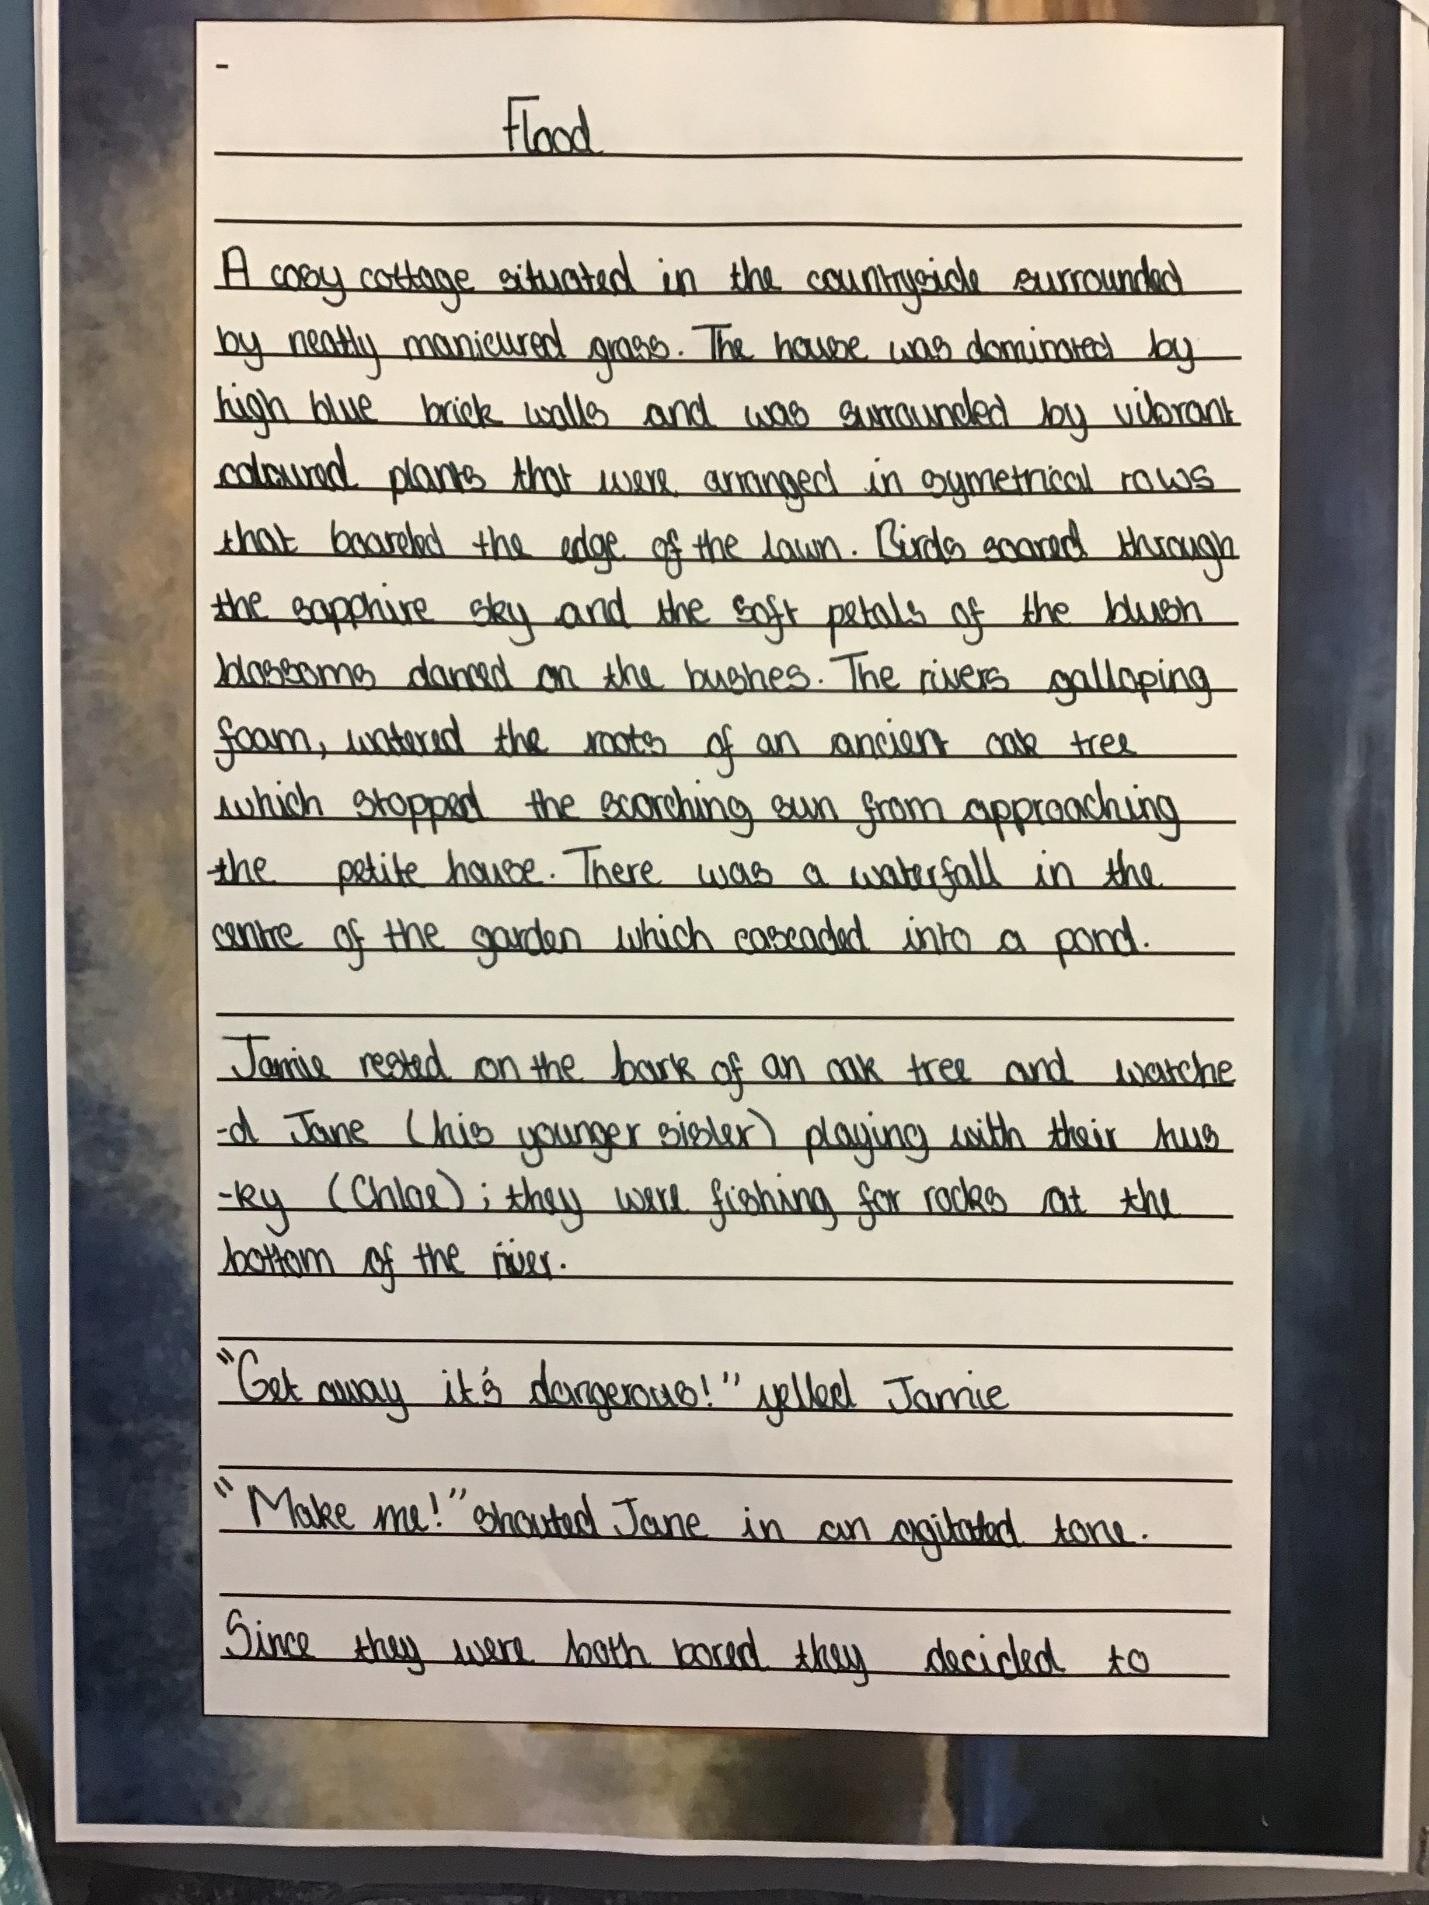 -
Flood
A cosy cottage situated in the countryside surrounded
by neatly manicured grass. The house was dominated by
high blue brick walls and was surrounded by vibrant
coloured plants that were arranged in symetrical rows
that boareded the edge of the lawn. Birds soared through
the sapphire sky and the soft petals of the blush
blossoms danced on the bushes. The rivers galloping
foam, watered the roots of an ancient oak tree
which stopped the scorching sun from approaching
the petite house. There was a waterfall in the
centre of the garden which cascaded into a pond.
Jamie rested on the bark of an oak tree and watche
-d Jane (his younger sister) playing with their hus
-ky (Chloe); they were fishing for rocks at the
bottom of the river.
"Get away it's dangerous!" yelled Jamie
"Make me!" shouted Jane in an agitated tone.
Since they were both bored they decided to